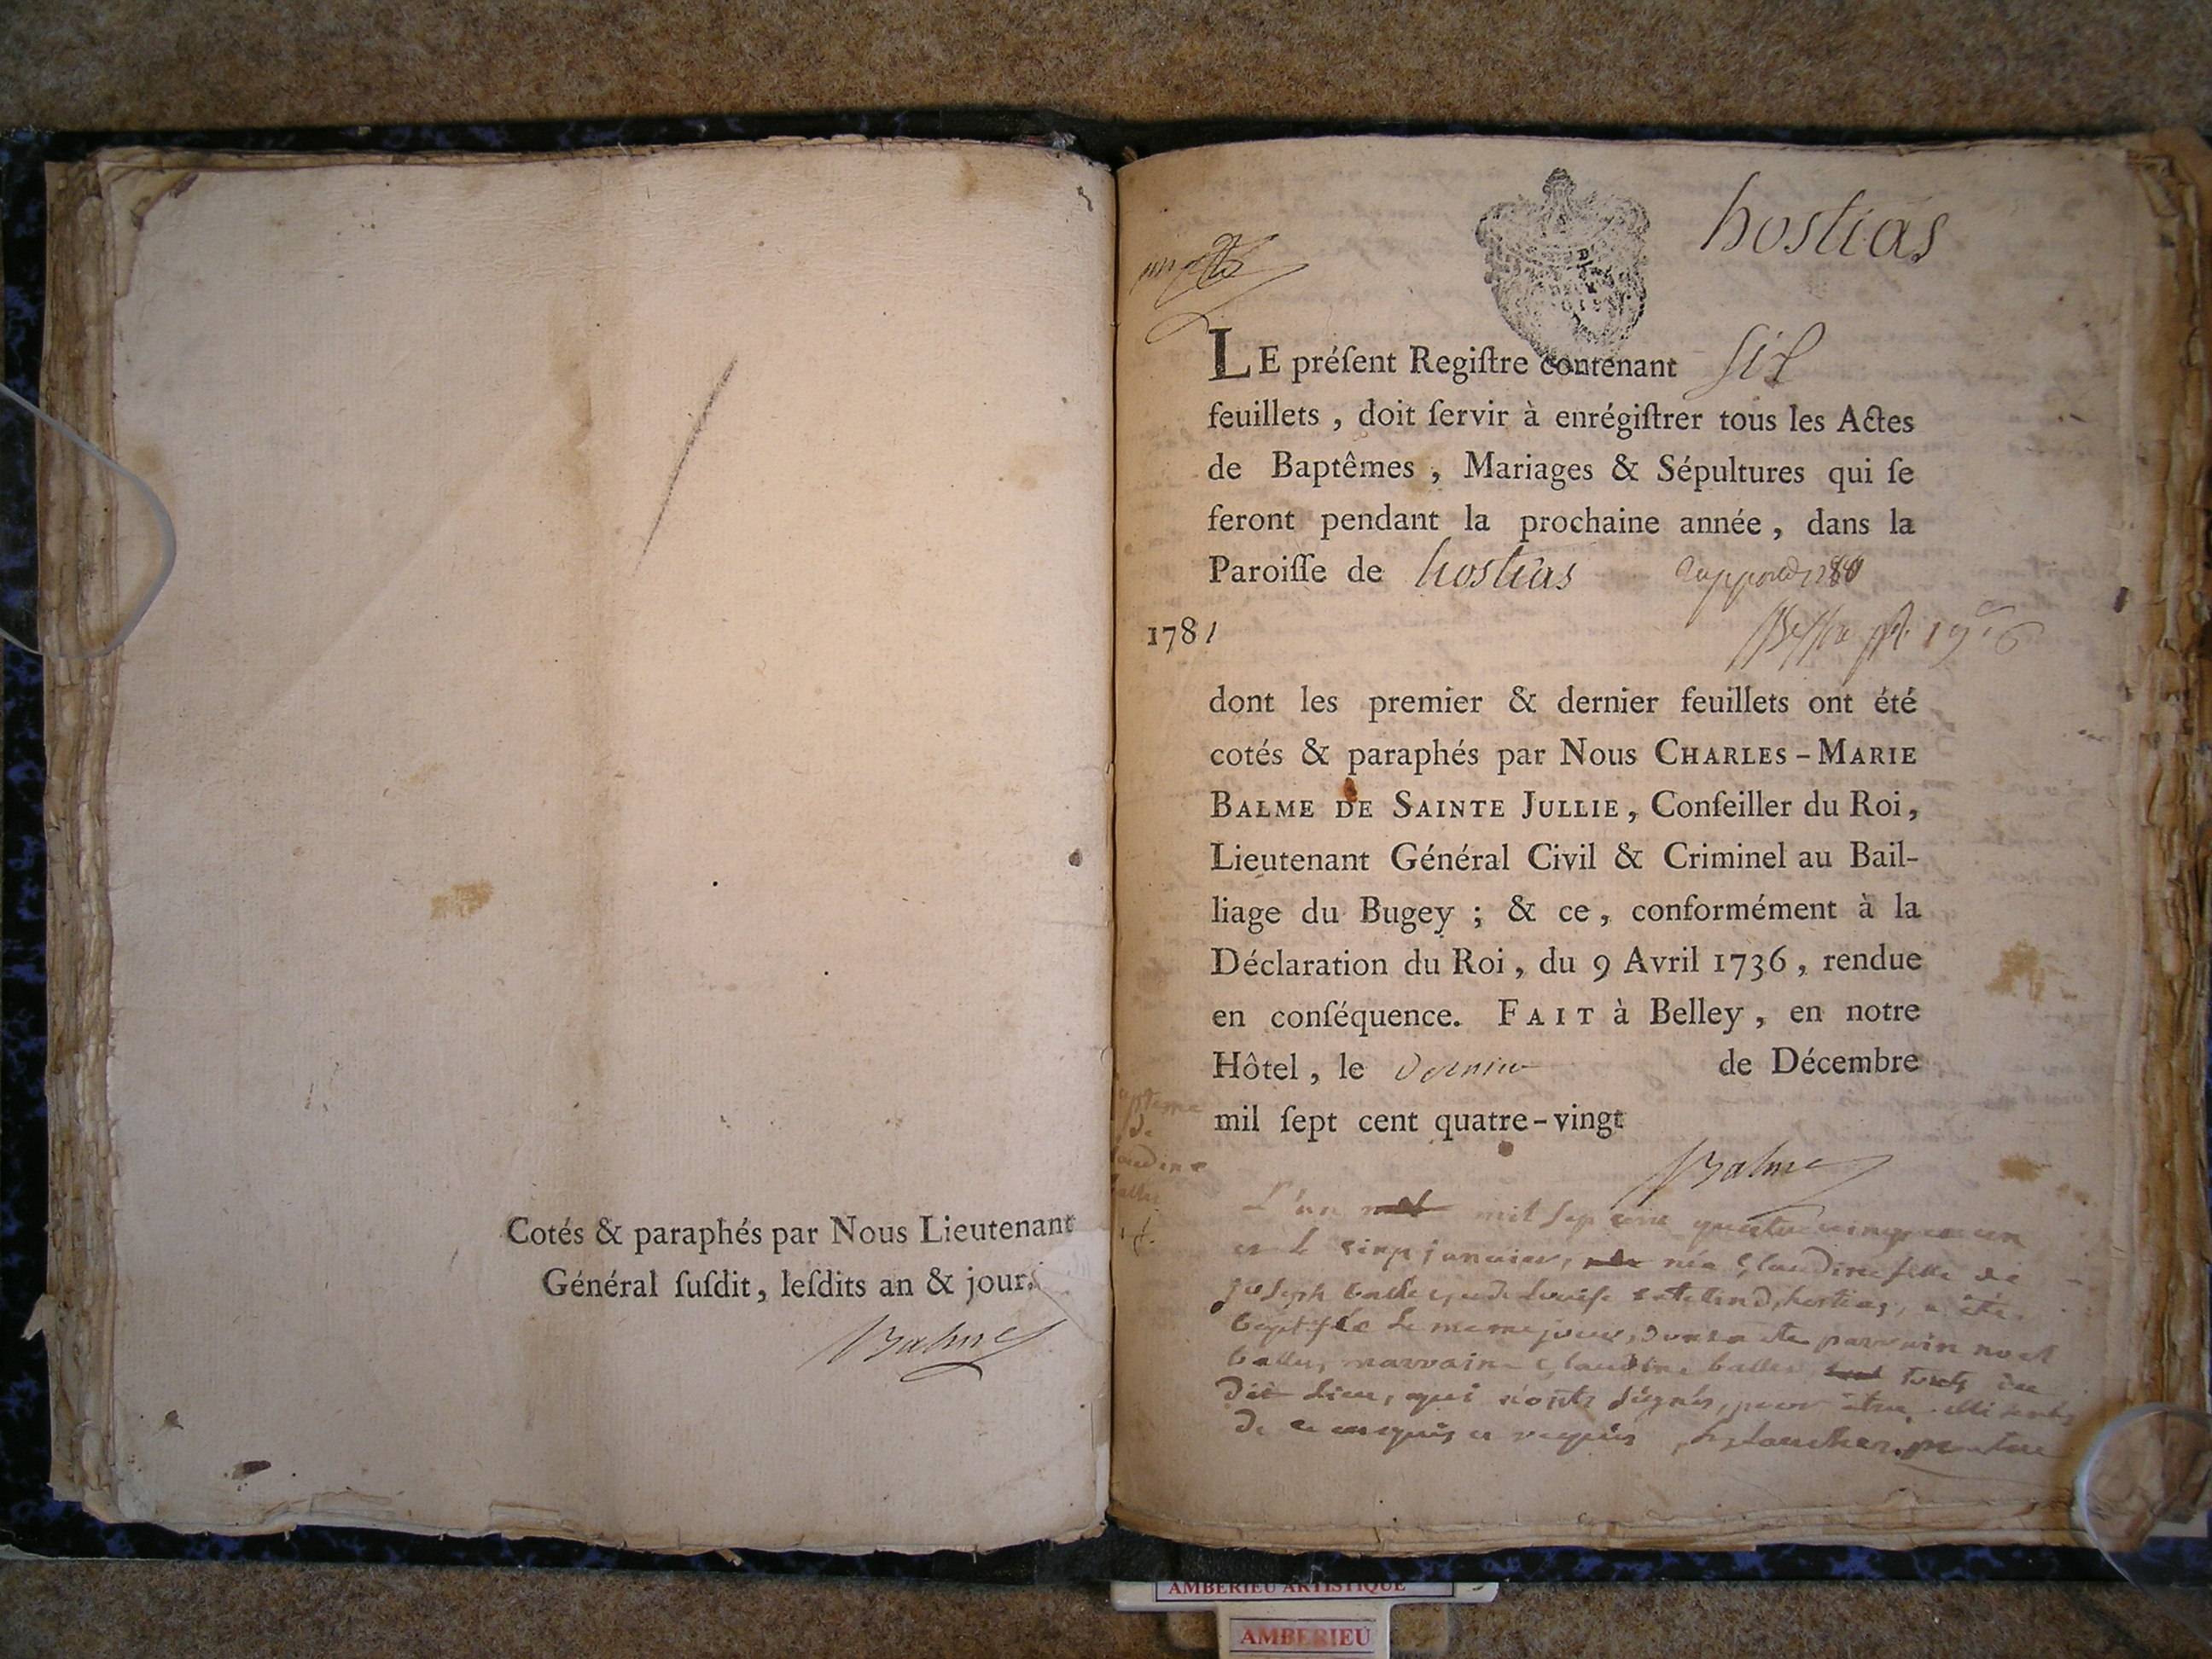 Cotés & paraphés par Nous Lieutenant
Général ſuſdit, leſdits an & jour.
Balme
hostias
LE préſent Regiſtre contenant six
feuillets, doit ſervir à enrégiſtrer tous les Actes
de Baptêmes, Mariages & Sépultures qui ſe
feront pendant la prochaine année, dans la
Paroiſſe de hostias
1781
dont les premier & dernier feuillets ont été
cotés & paraphés par Nous CHARLES-MARIE
BALME DE SAINTE JULLIE, Conſeiller du Roi,
Lieutenant Général Civil & Criminel au Bail-
liage du Bugey ; & ce, conformément à la
Déclaration du Roi, du 9 Avril 1736, rendue
en conſéquence. FAIT à Belley, en notre
Hôtel, le dernier de Décembre
mil ſept cent quatre-vingt
Balme
L'an mil sep cent quatre vingt et un
et le cinq janvier, née Claudine fille de
joseph balle et de Louise hostias, a été
baptisée le meme jour, parrain noel
balle, marraine Claudine balle touts du
dit lieu, qui n'onts signés, pour être
de ce enquis et requis
AMBERIEU ARTISTIQUE
AMBERIEU